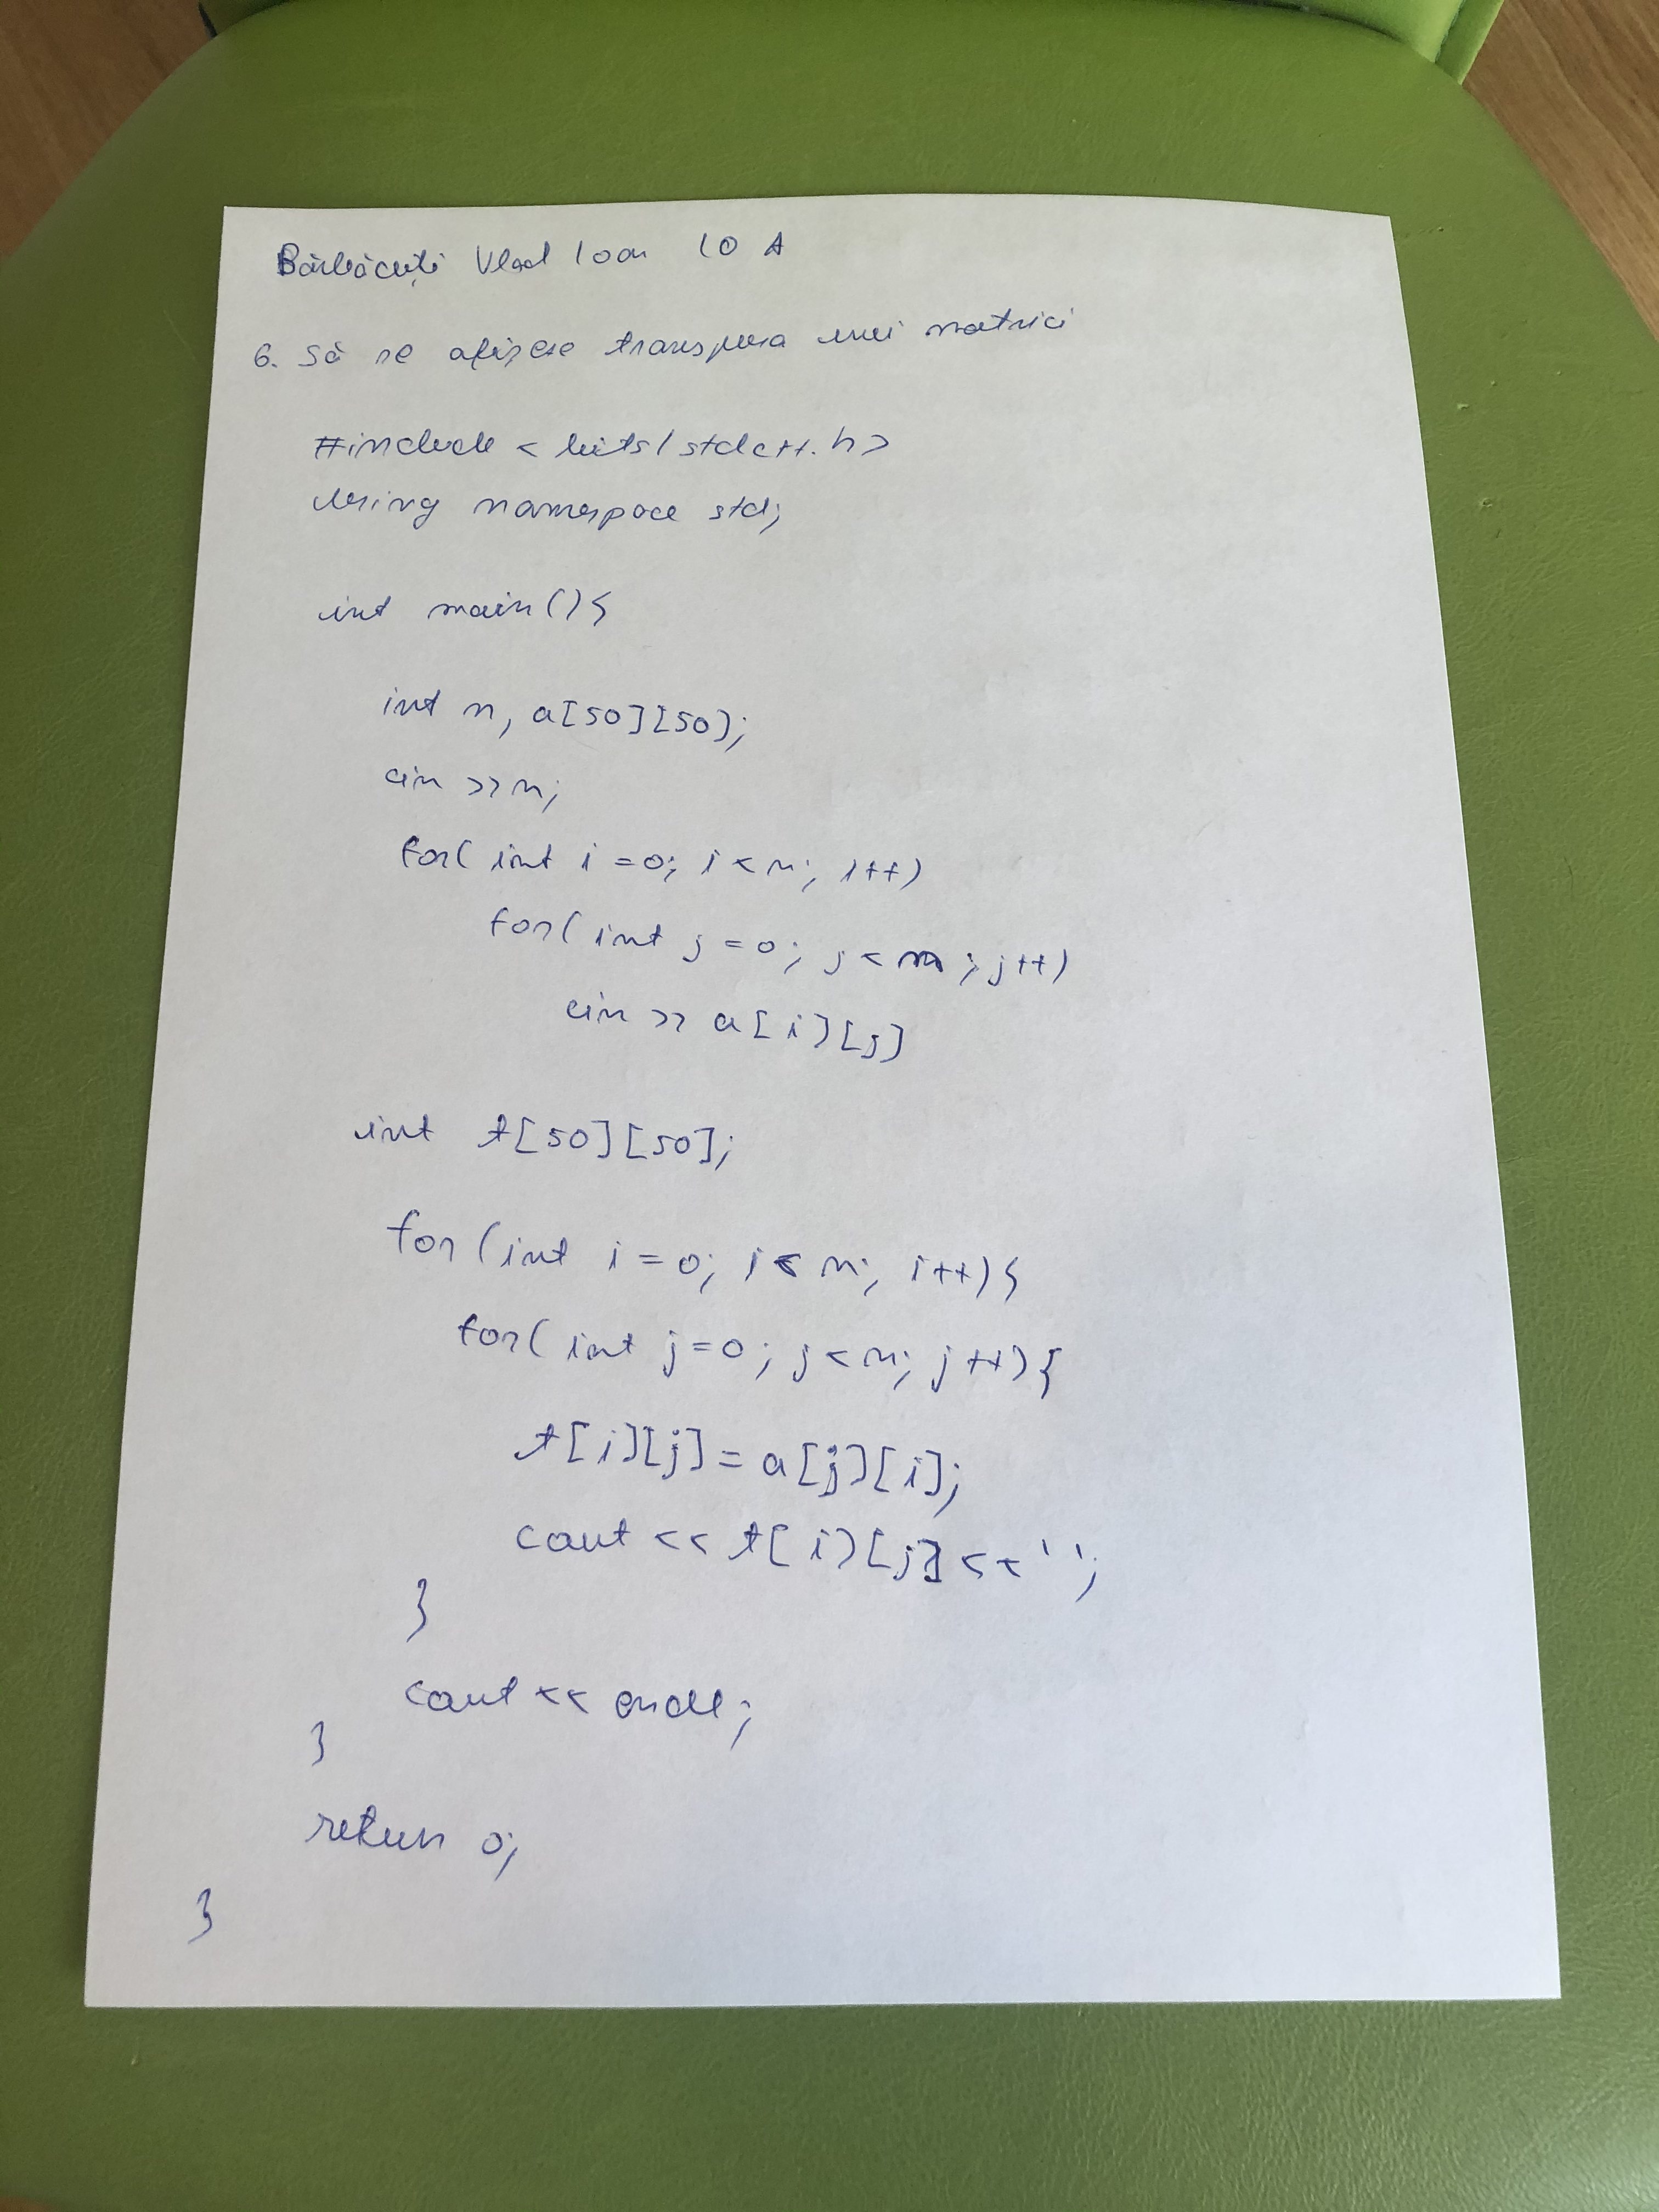 Bărbăcuți Vlad Ioan 10 A
6. Să se afișeze transpusa unei matrici
#include <bits/stdc++.h>
using namespace std;
int main(){
int n, a[50][50];
cin >> n;
for( int i = 0; i < n; i++)
for( int j = 0; j < n; j++)
cin >> a[i][j]
int t[50][50];
for (int i = 0; i < n; i++){
for( int j=0; j < n; j++){
t[i][j] = a[j][i];
cout << t[i][j] << ' ';
}
cout << endl;
}
return 0;
}